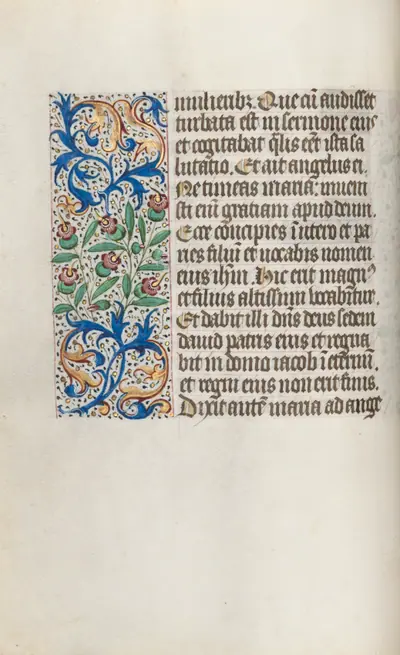 mulieribz. Que cu audisset
turbata est in sermone eius
et cogitabat qlis eet ista sa
lutatio. Et ait angelus ei.
Ne timeas maria: inveni
sti eni gratiam apud deum.
Ecce concipies i utero et pa
ries filiu et vocabis nomen
eius ihm. Hic erit magn9
et filius altissimi vocabitur.
Et dabit illi dns deus sedem
david patris eius et regna
bit in domo iacob i eternu.
et regni eius non erit finis.
Dixit aute maria ad ange